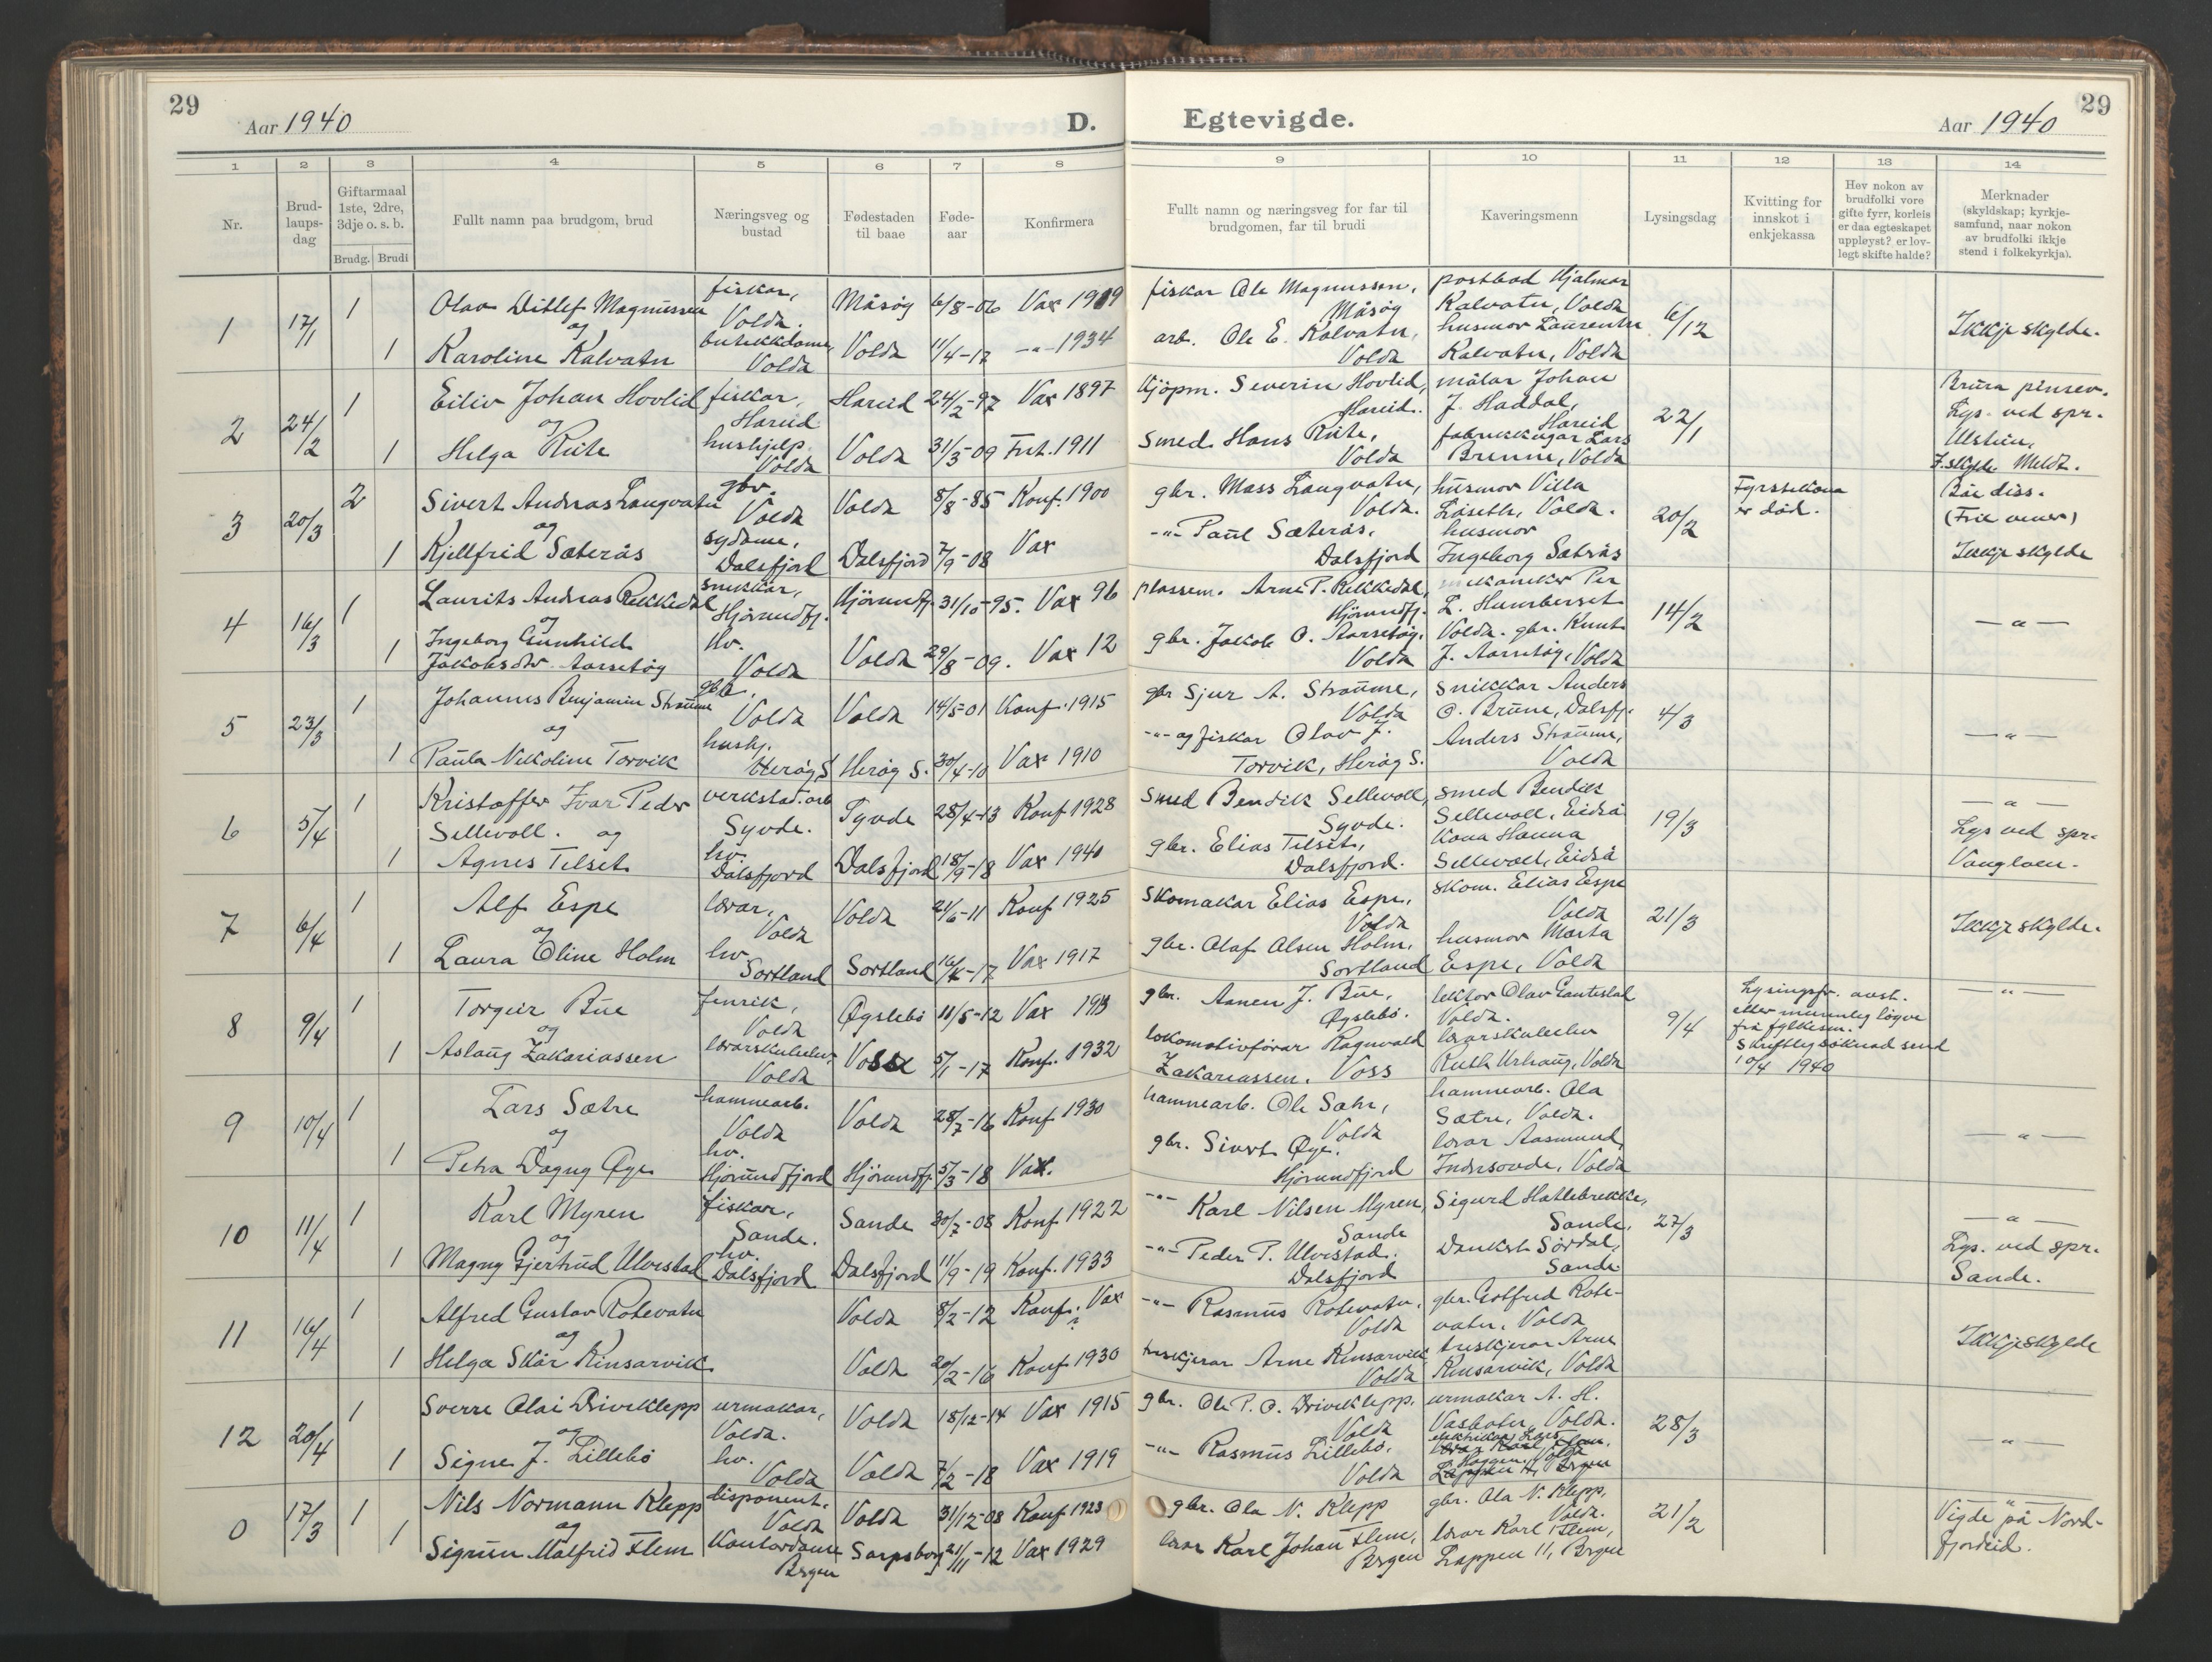 29
Aar 1940
D.
1 2 3 4 5 6 7 8
Nr.
Brud-
laups-
dag
Giftarmaal
1ste, 2dre,
3dje o. s. b.
Brudg. Brudi
Fullt namn paa brudgom, brud
Næringsveg og
bustad
Fødestaden
til baae
Føde-
aar
Konfirmera
1 17/1 1 Olav Ditlef Magnussen fiskar, Volda. Måsøy 6/8-06 Vax 1909
og
1 Karoline Kalvatn butikkdame, Volda Volda 11/4-17 -"- 1934
2 24/2 1 Eiliv Johan Hovlid fiskar, Hareid Hareid 24/2-97 Vax 1897
og
1 Helga Riite hushjelp. Volda Volda 31/3-09 Frit. 1911
3 20/3 2 Sivert Andreas Langvatn gbr. Volda Volda 8/8-85 Konf. 1900
og
1 Kjellfrid Sæterås sydame, Dalsfjord Dalsfjord 7/9-08 Vax
4 16/3 1 Laurits Andreas Rekkedal snikkar, Hjørundfj. Hjørundfj. 31/10-95. Vax 96
og
1 Ingeborg Gunhild hv.
Jakobsdtr. Aarsetøy Volda Volda 29/8-09. Vax 12
5 23/3 1 Johannes Benjamin Straume gbr, Volda Volda 14/5-01 Konf. 1915
og
1 Paula Nikoline Torvik hushj. Herøy S. Herøy S. 30/4-10 Vax 1910
6 5/4 1 Kristoffer Ivar Peder verkstad.arb
Sellevoll. og Syvde. Syvde 28/4-13 Konf 1928
1 Agnes Tilseth hv. Dalsfjord Dalsfjord 18/9-18 Vax 1940
7 6/4 1 Alf Espe lærar, Volda Volda 21/6-11 Konf 1925
og
1 Laura Oline Holm hv. Sortland Sortland Vax 1917
8 9/4 1 Torgeir Bue fenrik, Volda Øyslebø 11/5-12 Vax 1913
og
1 Aslaug Zakariassen lærarskuleelev, Volda Voss 5/1-17 Konf. 1932
9 10/4 1 Lars Sætre hamnearb. Volda Volda 28/7-16 Konf 1930
og
1 Petra Dagny Øye hv. Hjørundfjord Hjørundfj. 5/3-18 Vax.
10 11/4 1 Karl Myren fiskar, Sande. Sande 30/7-08 Konf 1922
og
1 Magny Gjertrud Ulvestad hv. Dalsfjord Dalsfjord 11/9-19 Konf. 1933
11 16/4 1 Alfred Gustav Rotevatn Volda 8/2-12 Konf. Vax ?
og
1 Helga Skår Kinsarvik. Volda 20/2-16 Konf 1930
12 20/4 1 Sverre Olai Driveklepp urmakar, Volda. Volda 18/12-14 Vax 1915
og
1 Signe J. Lillebø hv. Volda Volda 7/2-18 Vax 1919
0 17/3 1 Nils Normann Klepp disponent, Volda Volda 31/12-08 Konf 1923
og
1 Sigrun Målfrid Flem Kontordame Bergen Sarpsborg 21/11-12 Vax 1929
Egtevigde.
29
Aar 1940
9 10 11 12 13 14
Fullt namn og næringsveg for far til
brudgomen, far til brudi
Kaveringsmenn
Lysingsdag
Kvitting for
innskot i
enkjekassa
Hev nokon av
brudfolki vore
gifte fyrr, korleis
er daa egteskapet
uppløyst? er lov-
legt skifte halde?
Merknader
(skyldskap; kyrkje-
samfund, naar nokon
av brudfolki ikkje
stend i folkekyrkja).
fiskar Ole Magnussen, Måsøy postbod Hjalmar Kalvatn, Volda 6/12 Ikkje skylde.
arb. Ole E. Kalvatn, Volda husmor Laurentse Kalvatn, Volda
Kjøpm. Severin Hovlid, Hareid. målar Johan J. Haddal, Hareid 22/1 Brura pinsev. Lys. ved spr. Ulstein.
smed Hans Riite, Volda fabrikkeigar Lars Brenne, Volda I. skylde Meldt.
gbr. Mass Langvatn, Volda. husmor Villa Låseth, Volda. 20/2 Fyrstekona er død. Båe diss. (Frie venner)
-"- Paul Sæterås, Dalsfjord husmor Ingeborg Sæterås Ikkje skylde
plassem. Arne P. Rekkedal, Hjørundfj. mekaniker Per L. Humberset Volda. 14/2 -"-
gbr. Jakob O. Aarsetøy. Volda gbr. Knut J. Aarsetøy, Volda
gbr Sjur A. Straume, Volda snikkar Anders O. Brune, Dalsfj. 4/3 -"-
-"- og fiskar Olav J. Torvik, Herøy S. Anders Straume, Volda
Smed Bendik Sellevoll, Syvde. smed Bendik Sellevoll, Eidså 19/3 -"-
gbr. Elias Tilseth, Dalsfjord. kona Hanna Sellevoll, Eidså Lys ved spr. Vanylven.
Skomakar Elias Espe, Volda skom. Elias Espe Volda 21/3 Ikkje skylde.
gbr. Olaf Olsen Holm, Sortland husmor Marta Espe, Volda
gbr. Aanen J. Bue, Øyslebø. lektor Olav Volda. 9/4 Lysingsfr. avst. etter munnleg løyve frå fylkesm. Skriftleg søknad send 10/4 1940 -"-
lokomotivførar Ragnvald Zakariassen. Voss lærarskuleelev Ruth Urhaug, Volda
hamnearb. Ole Sætre, Volda hamnearb. Ola Sætre, Volda. -"-
gbr. Sivert Øye. Hjørundfjord lærar Aasmund Indresovde, Volda
-"- Karl Nilsen Myren, Sande Sigurd Hatlebrekke, Sande, 27/3 -"-
-"- Peder P. Ulvestad. Dalsfjord Dankert Sørdal, Sande. Lys. ved spr. Sande.
-"- Rasmus Rotevatn, Volda gbr. Gotfred Rotevatn, Volda
treskjerar Arne Kinsarvik Volda treskjerar Arne Kinsarvik, Volda Ikkje skylde
gbr. Ole P. O. Driveklepp. Volda urmakar A. H. Vasbotn, Volda. 28/3
-"- Rasmus Lillebø. Volda elektrikar Lars Haugen, Volda -"-
gbr. Ola N. Klepp gbr. Ola N. Klepp, Volda. 21/2 Vigde på Nord-
lærar Karl Johan Flem, Bergen lærar Karl Flem, Lappen 11, Bergen fjordeid.